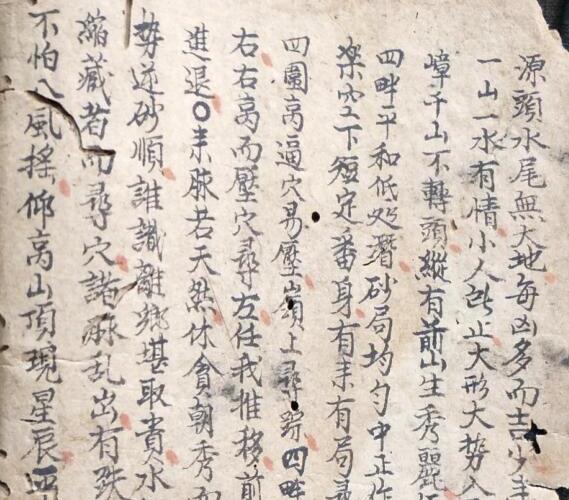 源頭水尾無大地每凶多而吉少
一山一水有情小人所止大形大势
嶂千山不轉頭縱有前山生秀麗
四畔平和低处潛砂局均匀中正作
樂空下短定番身有耒有局尋
四圍高逼穴易壓嶺上尋 四畔
右右高而壓穴尋左任我推移前
進退〇耒脉若天然休貪朝秀
势逆砂順誰識離鄉堪取貴水
縮藏者而尋穴諸脉乱出有跌
不怕八風摇仰高山頂現星辰